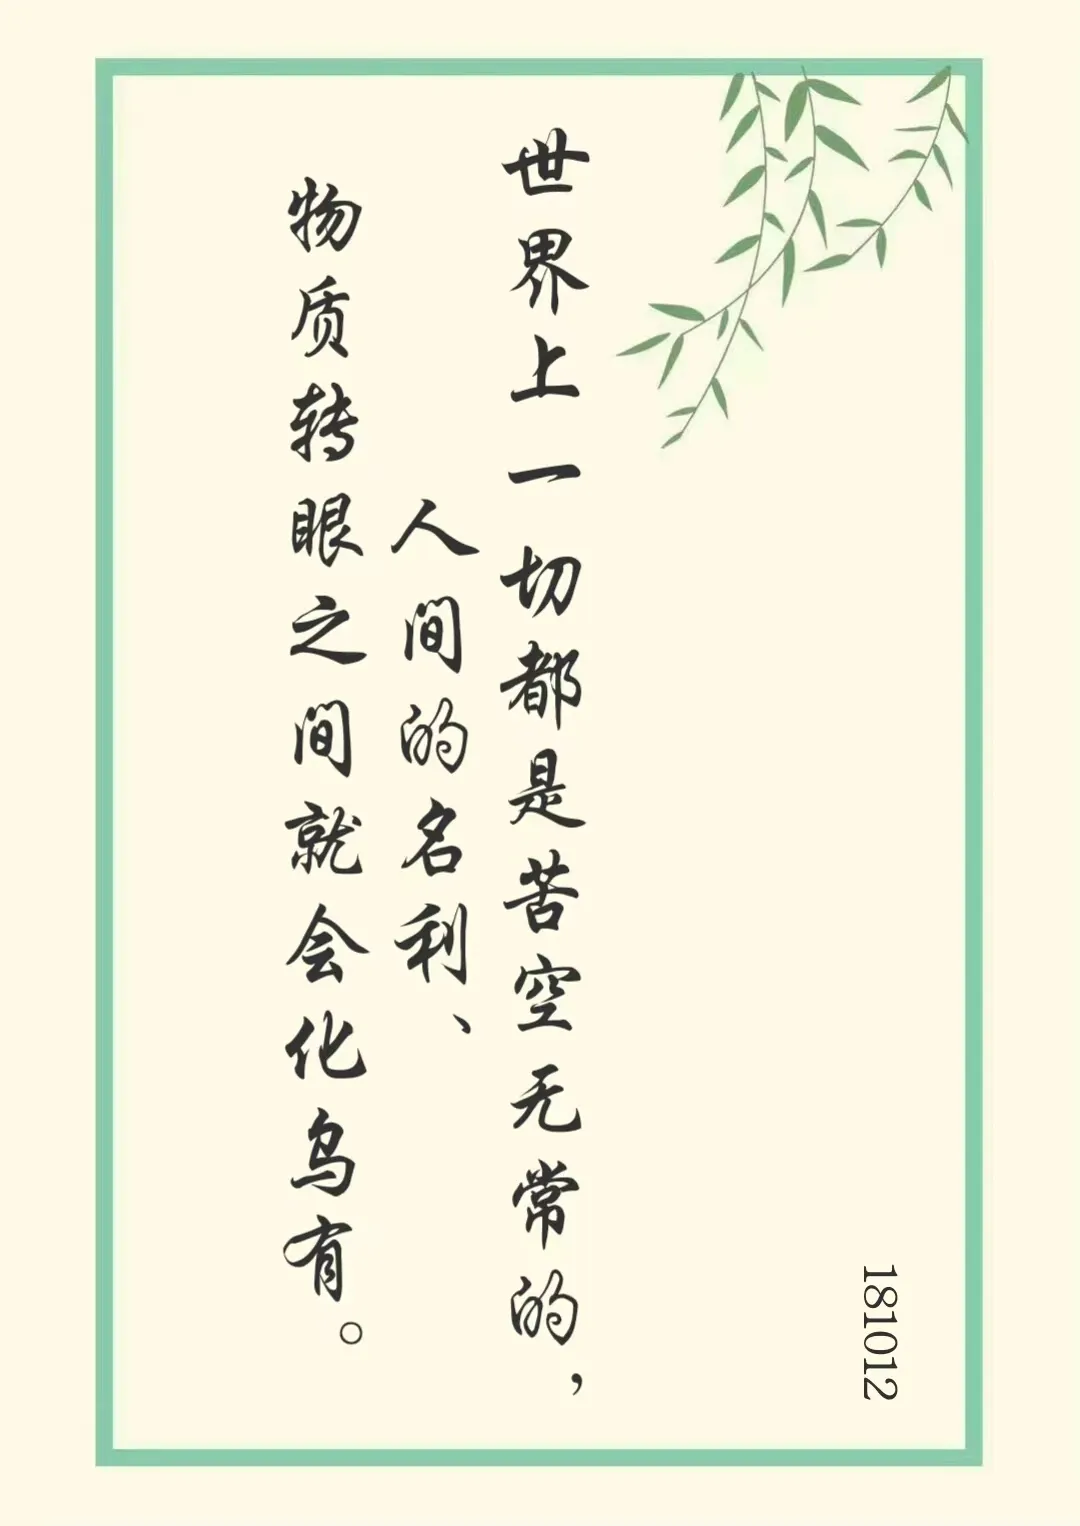 世界上一切都是苦空无常的，
人间的名利、
物质转眼之间就会化乌有。
181012